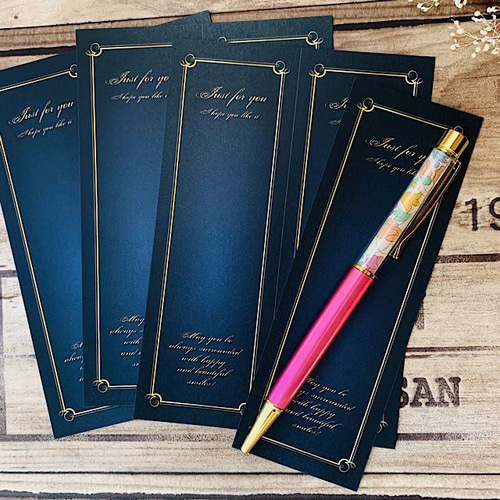 Just for you
I hope you like it
May you be
always surrounded
with happy
and beautiful
smiles!
Just for yo
I hope you like i
May you be
always s
smiles!
Just for you
I hope you like
May you be
always surrounded
with happy
and beautiful
smiles!
19
SAN